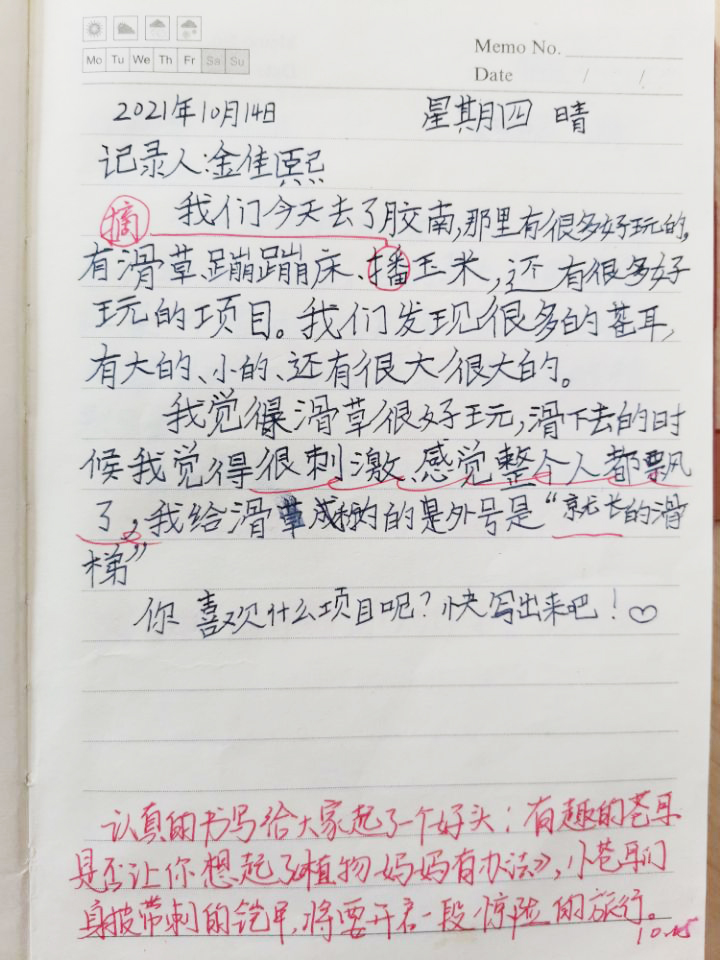 Memo No.
Mo Tu We Th Fr Sa Su
Date / /
2021年10月14日 星期四 晴
记录人:金佳熙
摘 我们今天去了胶南,那里有很多好玩的,
有滑草、蹦蹦床、播玉米,还有很多好
玩的项目。我们发现很多的苍耳,
有大的、小的、还有很大很大的。
我觉得滑草很好玩,滑下去的时
候我觉得很刺激、感觉整个人都飘
了,我给滑草 的是外号是“ 长的滑
梯”
你喜欢什么项目呢?快写出来吧!♡
认真的书写给大家起了一个好头;有趣的苍耳
是否让你想起了《植物妈妈有办法》,小苍耳们
身披带刺的铠甲,将要开启一段惊险的旅行。
10.15